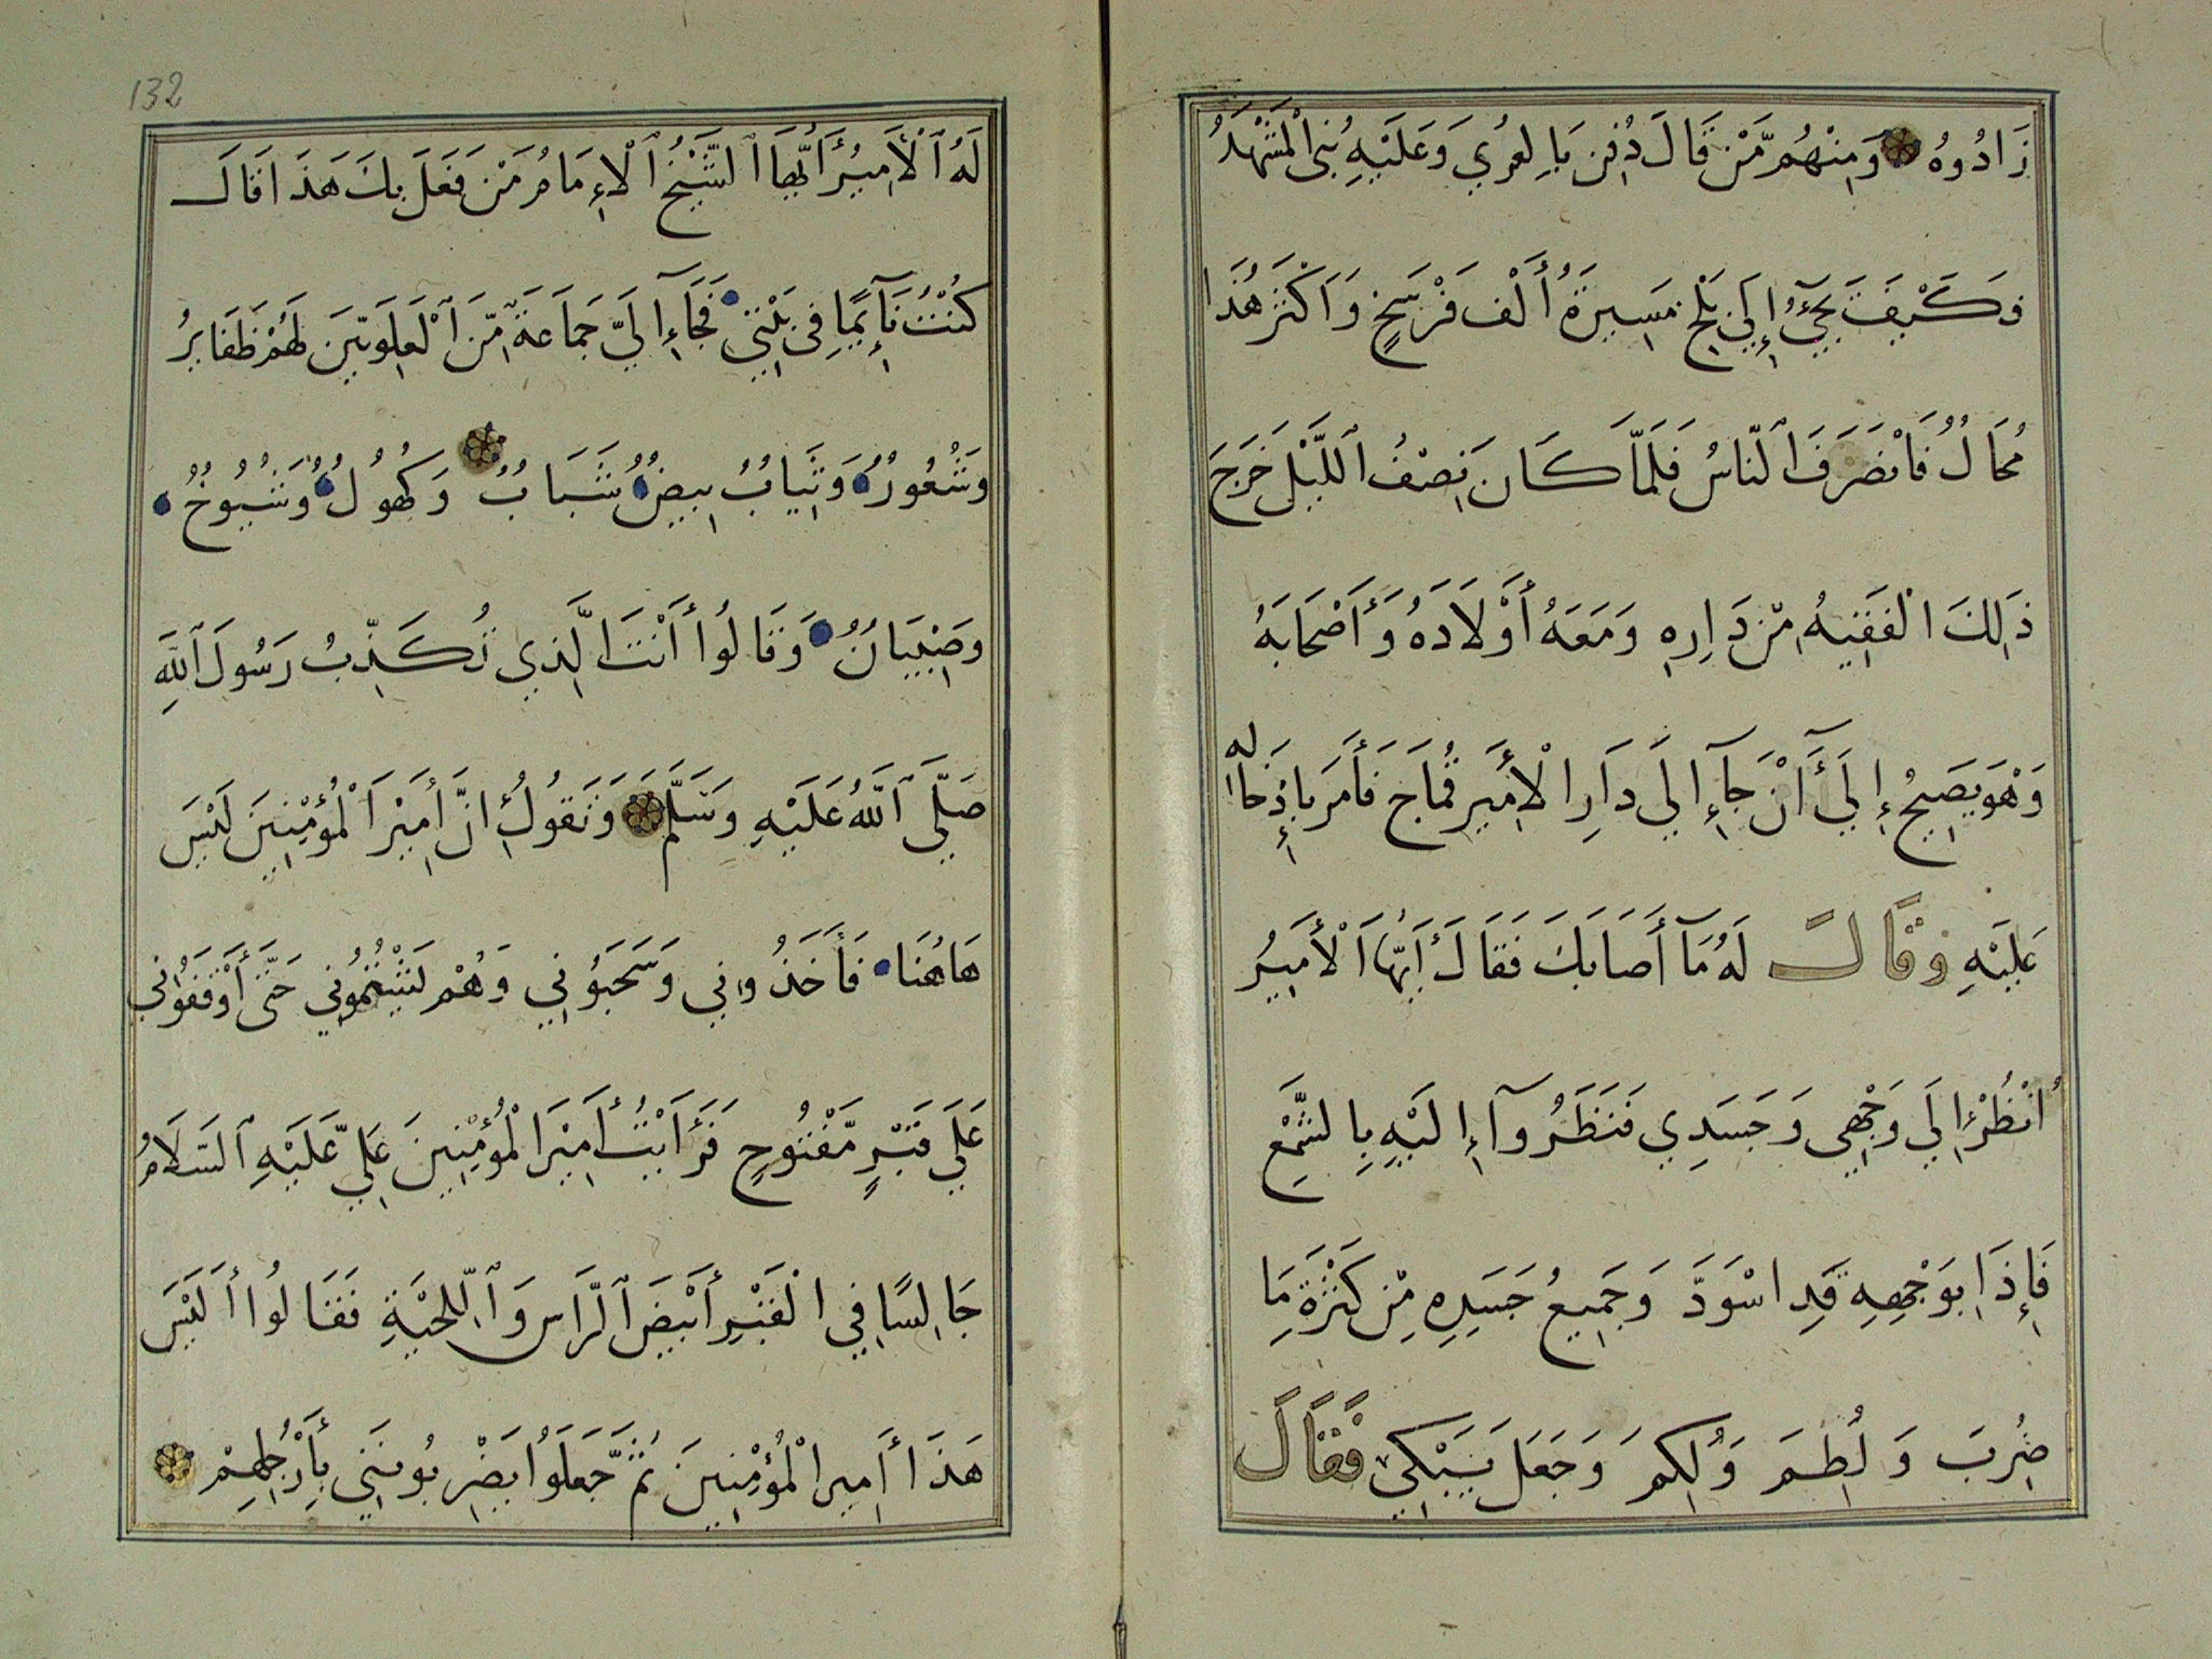 زَادُوهُ وَمِنْهُم مَّنْ قَالَ دُفِنَ بِالغَرِي وَعَلَيْهِ بُنِيَ الْمَشْهَدُ
وَكَيْفَ يَجِئُ إِلَى بَلْخٍ مَسِيرَةَ أَلْفِ فَرْسَخٍ وَأَكْثَرَ هَذَا
مُحَالٌ فَانْصَرَفَ ٱلنَّاسُ فَلَمَّا كَانَ نِصْفُ ٱللَّيْلِ خَرَجَ
ذَلِكَ الْفَقِيهُ مِّنْ دَارِهِ وَمَعَهُ أَوْلَادَهُ وَأَصْحَابَهُ
وَهُوَ يَصِيحُ إِلَى أَنْ جَآءَ إِلَى دَارِ الْأَمِيرِ قُمَاجَ فَأَمَرَ بِإِدْخَالِه
عَلَيْهِ وَقَالَ لَهُ مَآ أَصَابَكَ فَقَالَ أَيُّهَا الْأَمِيرُ
اُنْظُرْ إِلَي وَجْهِي وَجَسَدِي فَنَظَرُوآ إِلَيْهِ بِالشَّمْعِ
فَإِذَا بِوَجْهِهِ قَدِ اسْوَدَّ وَجَمِيعُ جَسَدِهِ مِنْ كَثْرَةِ مَا
ضُرِبَ وَلُطِمَ وَلُكِمَ وَجَعَلَ يَبْكِي فَقَالَ
132
لَهُ ٱلْأَمِيرُ أَيُّهَا ٱلشَّيْخُ ٱلْإِمَامُ مَنْ فَعَلَ بِكَ هَذَا قَالَ
كُنْتُ نَآئِمًا فِي بَيْتِي فَجَآءَ إِلَيَّ جَمَاعَةٌ مِّنَ الْعَلَوِيِّينَ لَهُمْ ظَفَايِرُ
وَشُعُورٌ وَثِيَابٌ بِيضٌ شَبَابٌ وَكُهُولٌ وَشُيُوخٌ
وَصِبْيَانٌ وَقَالُوا أَنْتَ الَّذِي تُكَذِّبُ رَسُولَ ٱللَّهِ
صَلَّى ٱللَّهُ عَلَيْهِ وَسَلَّمَ وَتَقُولُ إِنَّ أَمِيْرَ الْمُؤْمِنِينَ لَيْسَ
هَاهُنَا فَأَخَذُونِي وَسَحَبُونِي وَهُمْ يَشْتُمُونِي حَتَّى أَوْقَفَوُنِي
عَلَي قَبْرٍ مَّفْتُوحٍ فَرَأَيْتُ أَمِيْرَ الْمُؤْمِنِينَ عَلِيّ عَلَيْهِ ٱلسَلَامُ
جَالِسًا فِي الْقَبْرِ أَبْيَضَ ٱلرَّاسِ وَٱللِّحْيَةِ فَقَالُوا أَلَيْسَ
هَذَا أَمِيرَ الْمُؤْمِنِينَ ثُمَّ جَّعَلَوُا يَضْرِبُونَنِي بِأَرْجُلِهِمْ